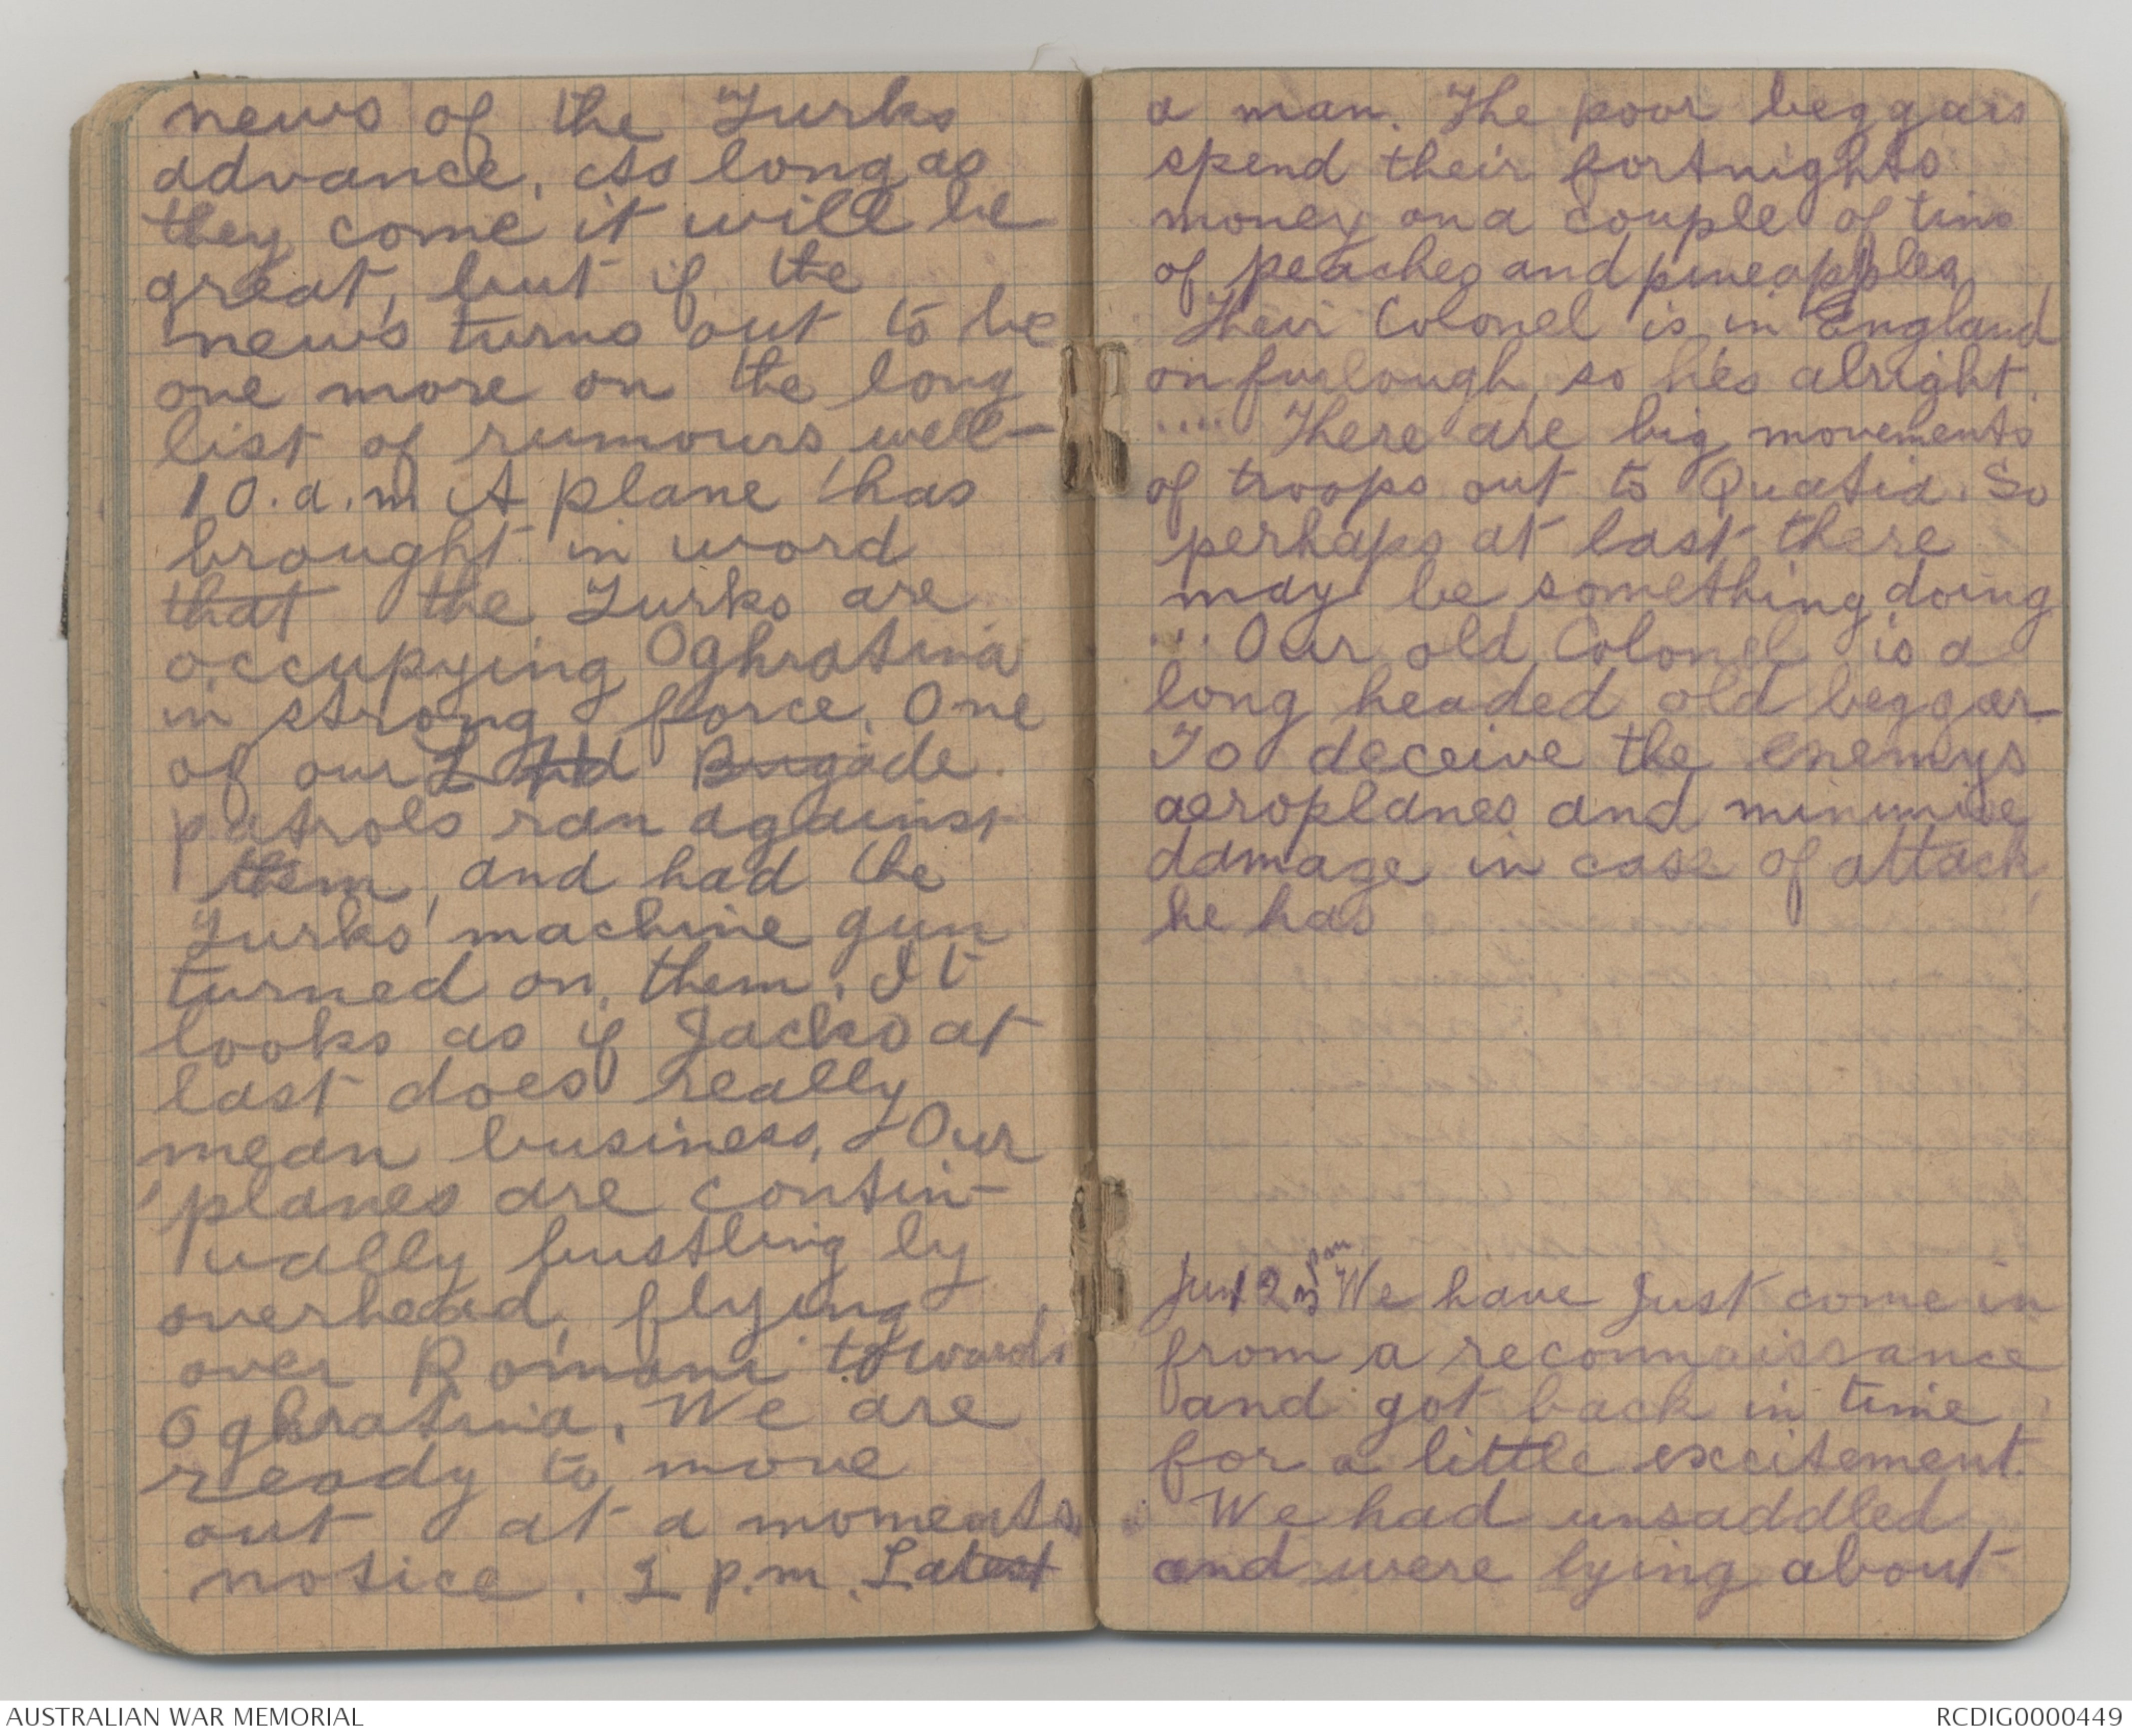 news of the Turks
advance. As long as
they come it will be
great, but if the
news turns out to be
one more on the long
list of rumours, well—
10.a.m A plane has
brought in word
that the Turks are
occupying Oghratina
in strong force. One
of our 2nd Brigade
patrols ran against
them, and had the
Turks' machine gun
turned on them. It
looks as if Jacko at
last does really
mean business. Our
'planes are contin-
ually bustling by
overhead, flying
over Romani towards
Oghratina. We are
ready to move
out at a moments
notice. 1 p.m. Latest
a man. The poor beggars
spend their fortnights
money on a couple of tins
of peaches and pineapples,
Their Colonel is in England
on furlough, so he's alright.
.... There are big movements
of troops out to Quatia. So
perhaps at last there
may be something doing
... Our old Colonel is a
long headed old beggar.
To deceive the enemys
aeroplanes and minimise
damage in case of attack,
he has
pm We have just come in
from a reconnaissance
and got back in time
for a little excitement.
We had unsaddled,
and were lying about
AUSTRALIAN WAR MEMORIAL
RCDIG0000449